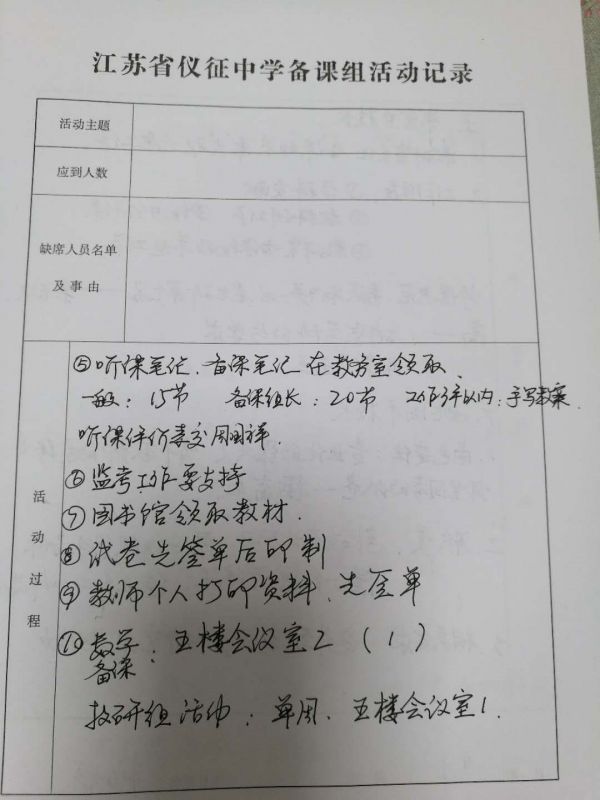 江苏省仪征中学备课组活动记录
活动主题
应到人数
缺席人员名单
及事由
活动过程
⑤听课笔记、备课笔记在教务室领取、
一般：15节 备课组长：20节 工作3年以内：手写教案
听课评价表交周国祥.
⑥监考工作要支持
⑦图书馆领取教材.
⑧试卷先签单后印制
⑨教师个人打印资料，先签单
⑩数学备课：五楼会议室2（1）
教研组活动：单周、五楼会议室1.